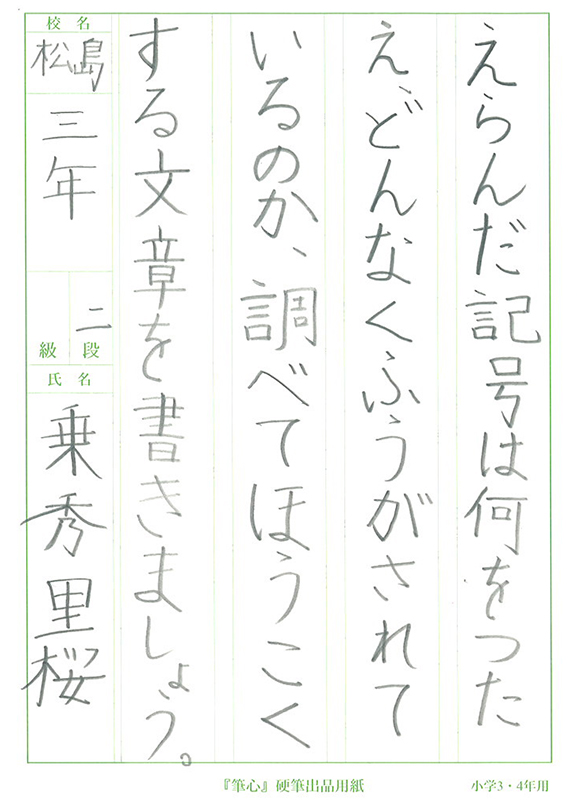 えらんだ記号は何をつた
え、どんなくふうがされて
いるのか、調べてほうこく
する文章を書きましょう。
校名
松島
三年
二段
級
氏名
乗秀里桜
『筆心』硬筆出品用紙
小学3・4年用